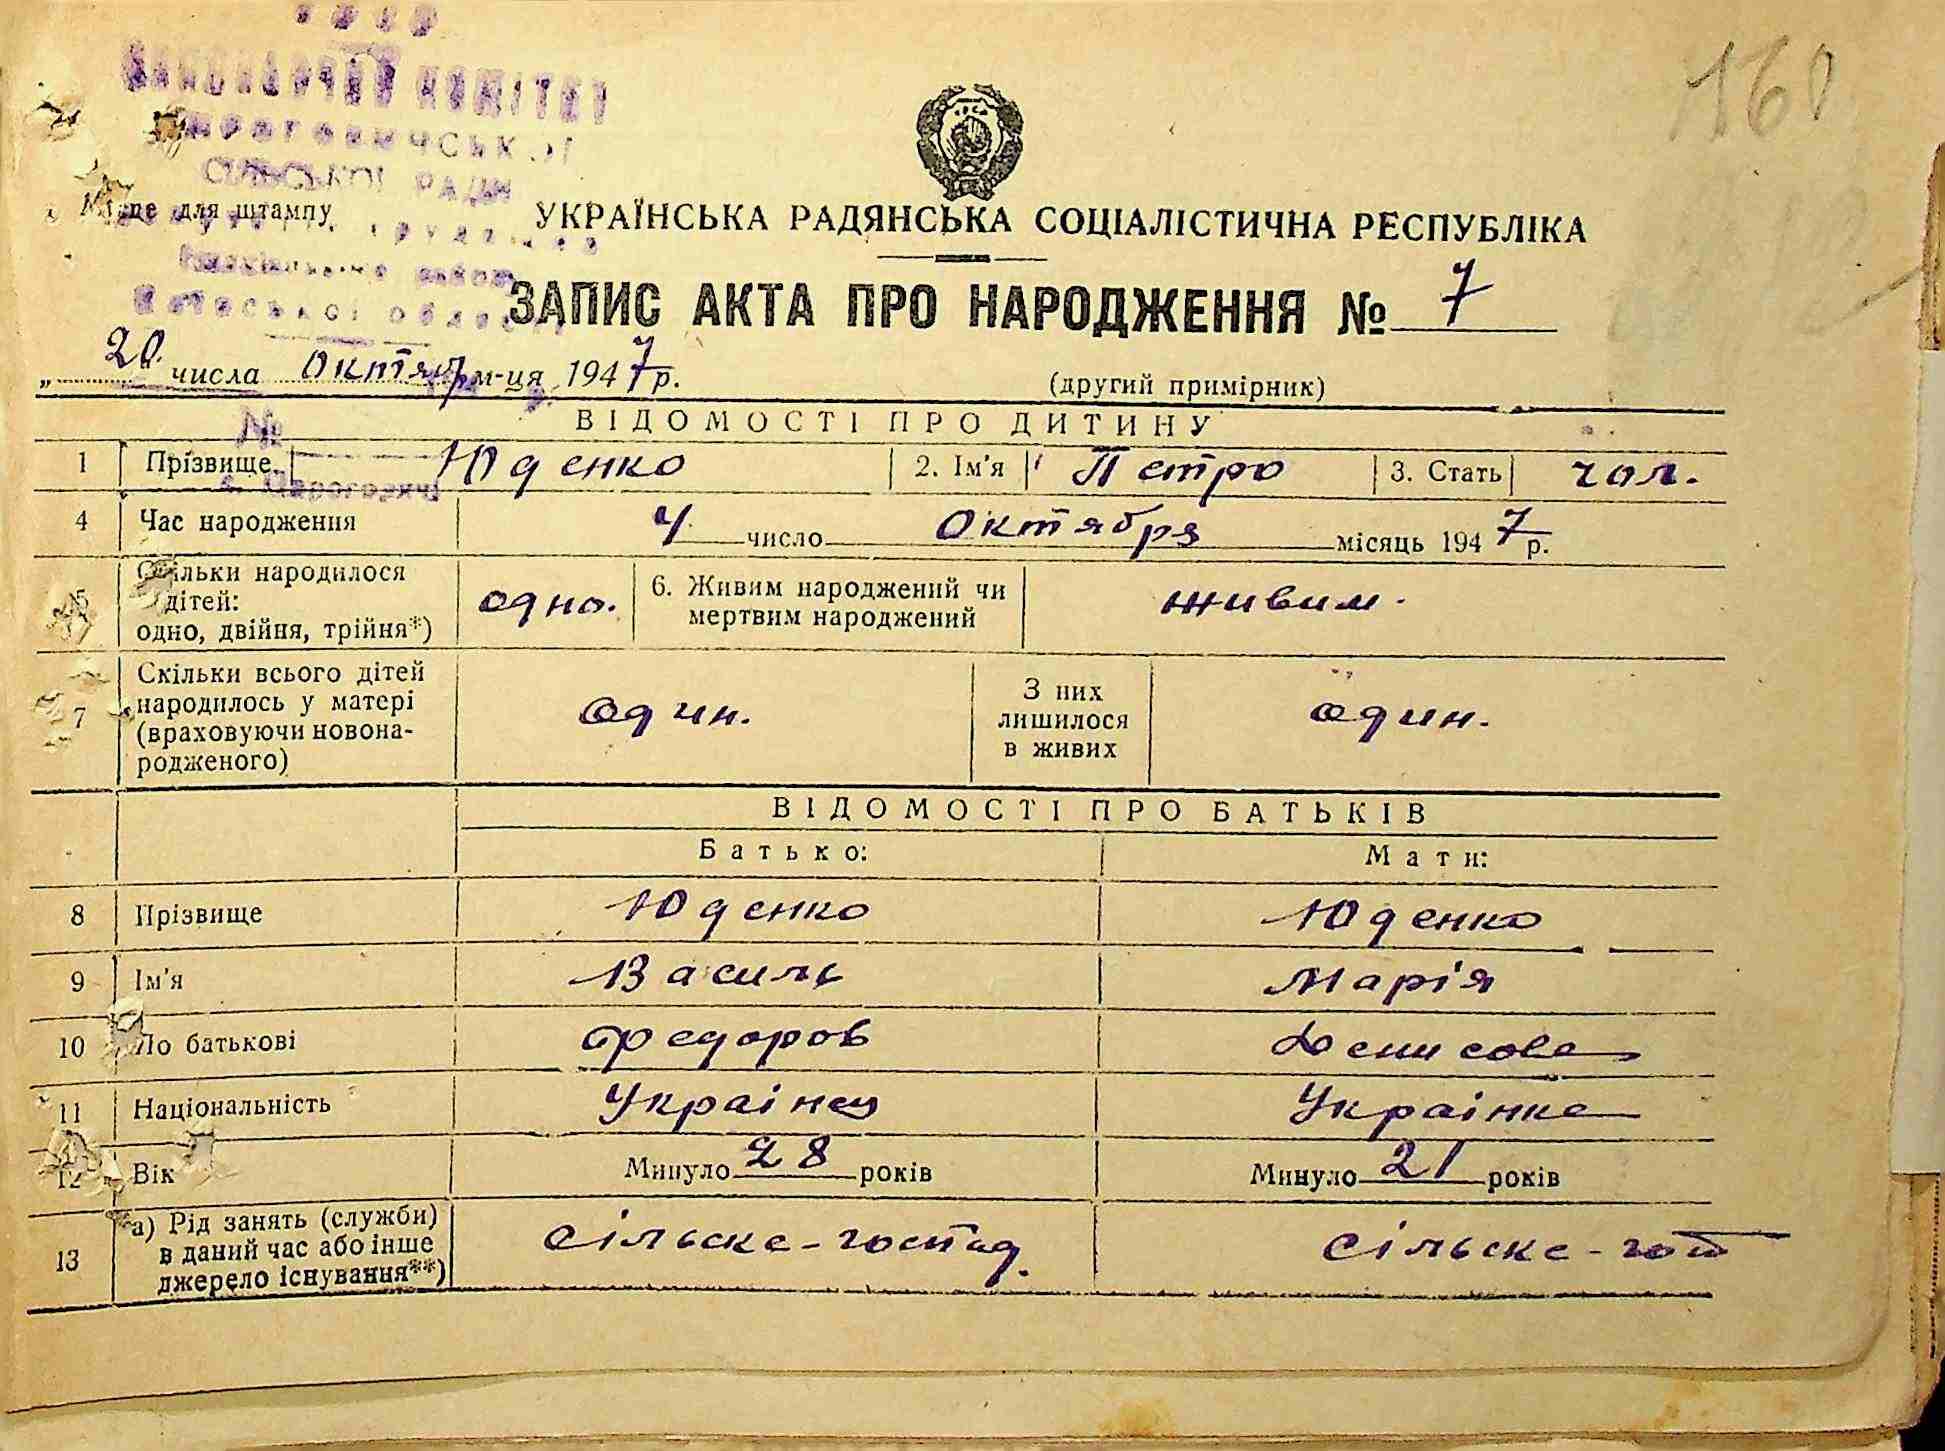 УРСР
ВИКОНАВЧИЙ КОМІТЕТ
СІЛЬСЬКОЇ РАДИ
Місце для штампу
Київської області
160
УКРАЇНСЬКА РАДЯНСЬКА СОЦІАЛІСТИЧНА РЕСПУБЛІКА
ЗАПИС АКТА ПРО НАРОДЖЕННЯ № 7
„20" числа Октябр м-ця 1947 р.
(другий примірник)
№
ВІДОМОСТІ ПРО ДИТИНУ
1 Прізвище Юденко 2. Ім'я Петро 3. Стать чол.
4 Час народження 4 число Октября місяць 1947 р.
5 Скільки народилося дітей: одно, двійня, трійня*) одно. 6. Живим народжений чи мертвим народжений живим.
7 Скільки всього дітей народилось у матері (враховуючи новонародженого) один. З них лишилося в живих один.
ВІДОМОСТІ ПРО БАТЬКІВ
Батько: Мати:
8 Прізвище Юденко Юденко
9 Ім'я Василь Марія
10 По батькові Федоров Денисова
11 Національність Украінец Украінка
12 Вік Минуло 28 років Минуло 21 років
13 а) Рід занять (служби) в даний час або інше джерело існування**) сільске-господ. сільске-гост